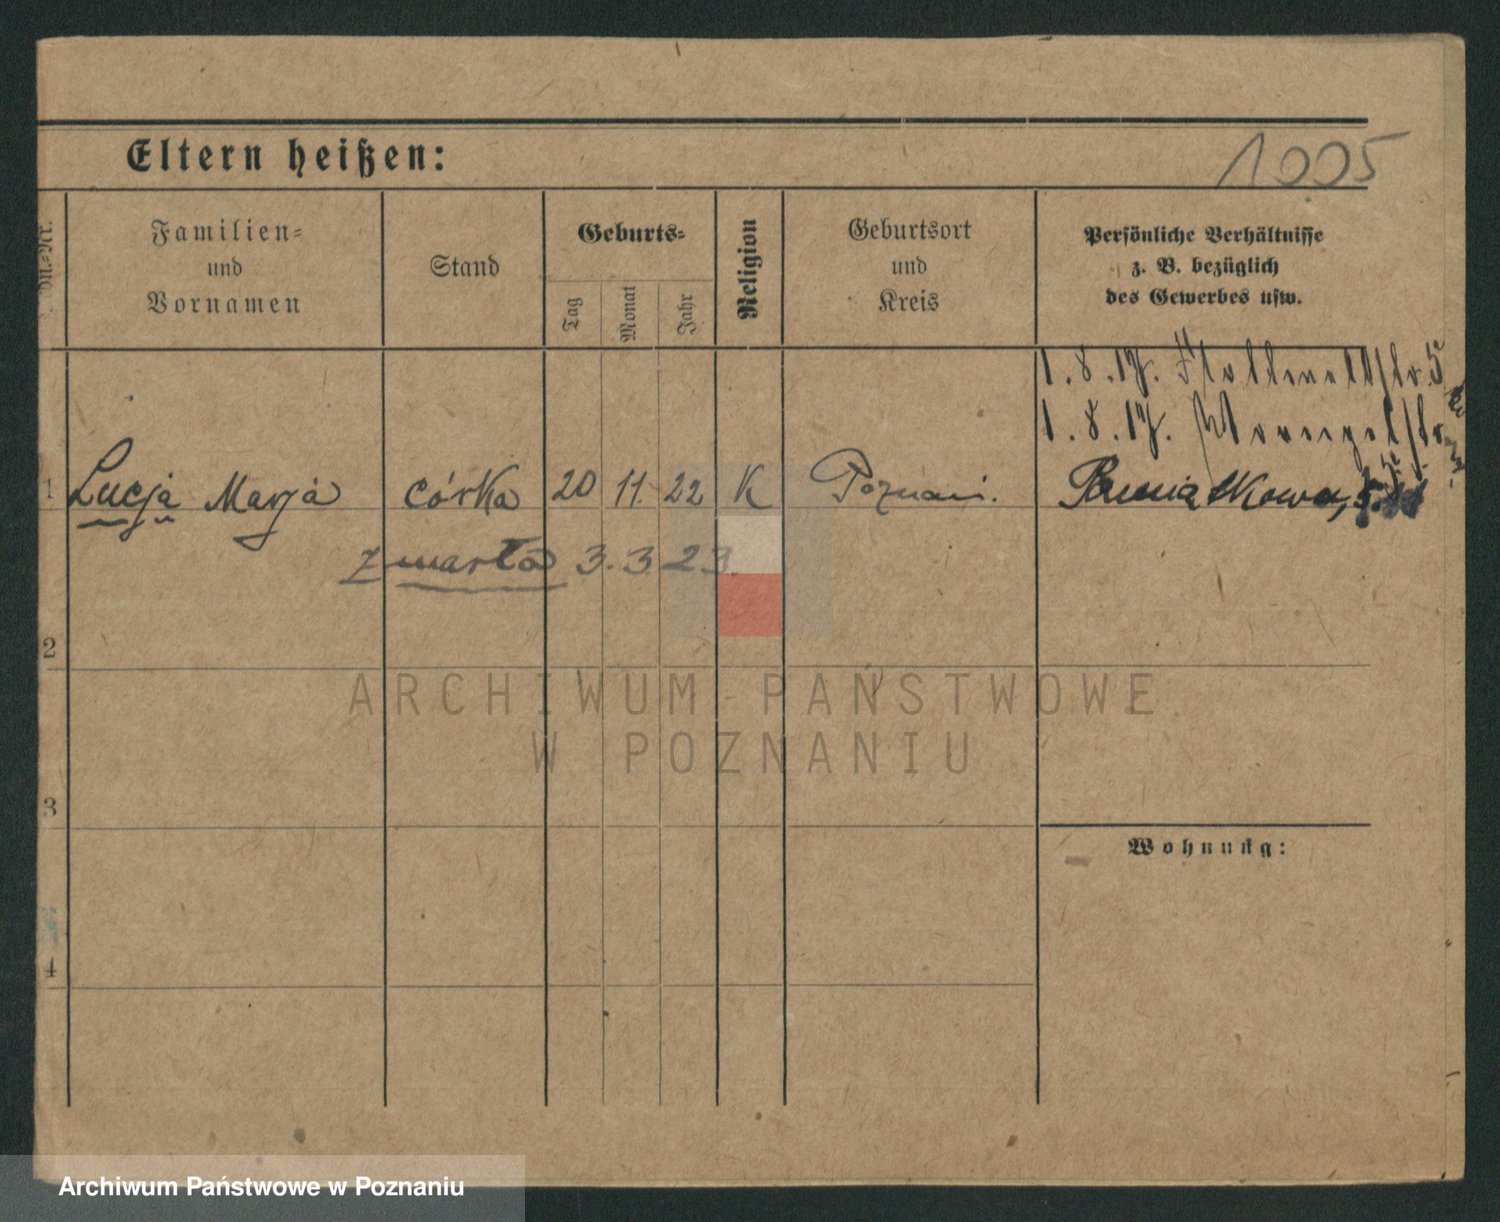 Eltern heißen:
1005
Familien=
und
Vornamen
Stand
Geburts=
Tag
Monat
Jahr
Religion
Geburtsort
und
Kreis
Persönliche Verhältnisse
z. B. bezüglich
des Gewerbes usw.
1.8.17.
1.8.17.
1 Lucja Marja córka 20 11. 22 K Poznań.
zmarła 3.3.23.
2
3
4
Wohnung:
ARCHIWUM PAŃSTWOWE
W POZNANIU
Archiwum Państwowe w Poznaniu